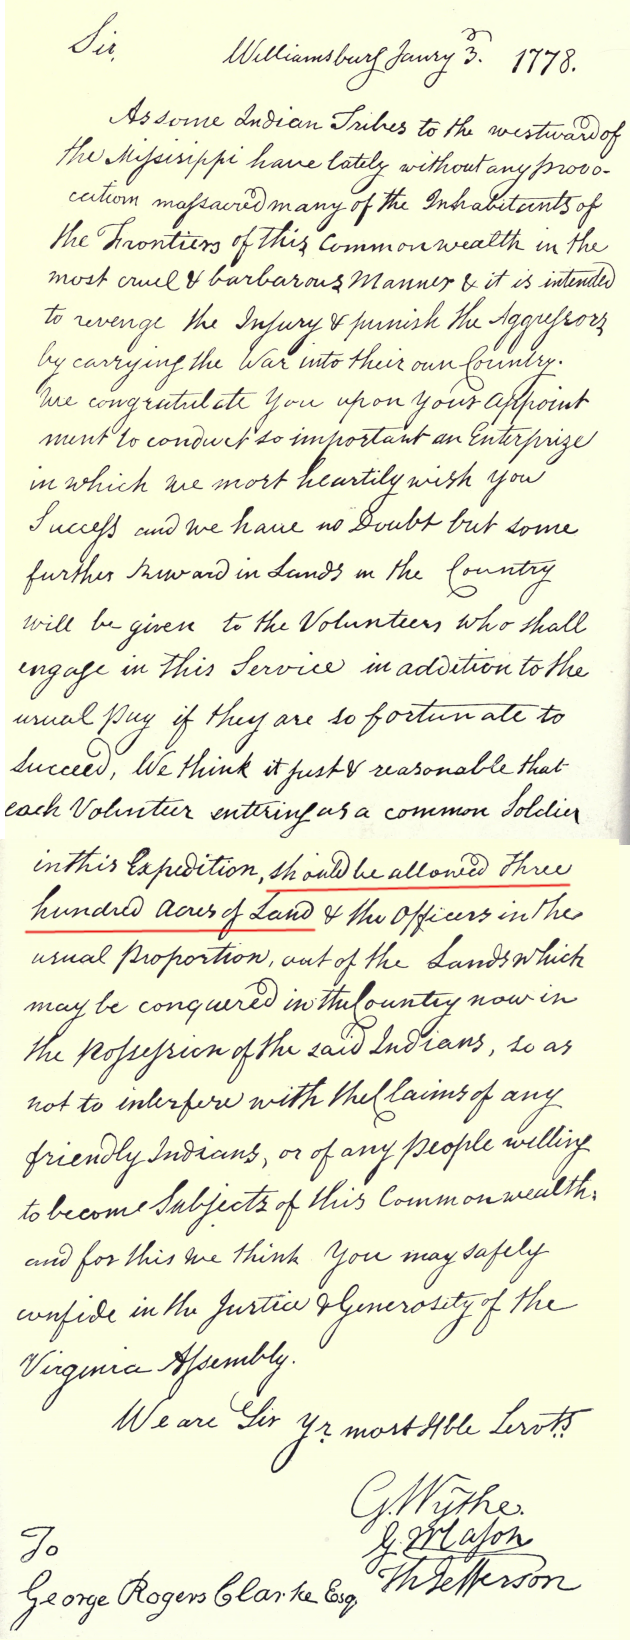 Sir,
Williamsburg Janry 3. 1778.
As some Indian Tribes to the westward of
the Missisippi have lately without any provo-
cation massacred many of the Inhabitants of
the Frontiers of this Commonwealth in the
most cruel & barbarous Manner & it is intended
to revenge the Injury & punish the Aggressors
by carrying the War into their own Country.
We congratulate You upon your Appoint
ment to conduct so important an Enterprize
in which we most heartily wish you
Success and we have no Doubt but some
further Reward in Lands in the Country
will be given to the Volunteers who shall
engage in this Service in addition to the
usual pay if they are so fortunate to
Succeed, We think it just & reasonable that
each Volunteer entering as a common Soldier
in this Expedition, should be allowed three
hundred Acres of Land & the Officers in the
usual proportion, out of the Lands which
may be conquered in the Country now in
the possession of the said Indians, so as
not to interfere with the Claims of any
friendly Indians, or of any people willing
to become Subjects of this Commonwealth;
and for this we think You may safely
confide in the Justice & Generosity of the
Virginia Assembly.
We are Sir Yr most Hble Servts
G. Wythe.
G. Mason
Th Jefferson
To
George Rogers Clarke Esq.